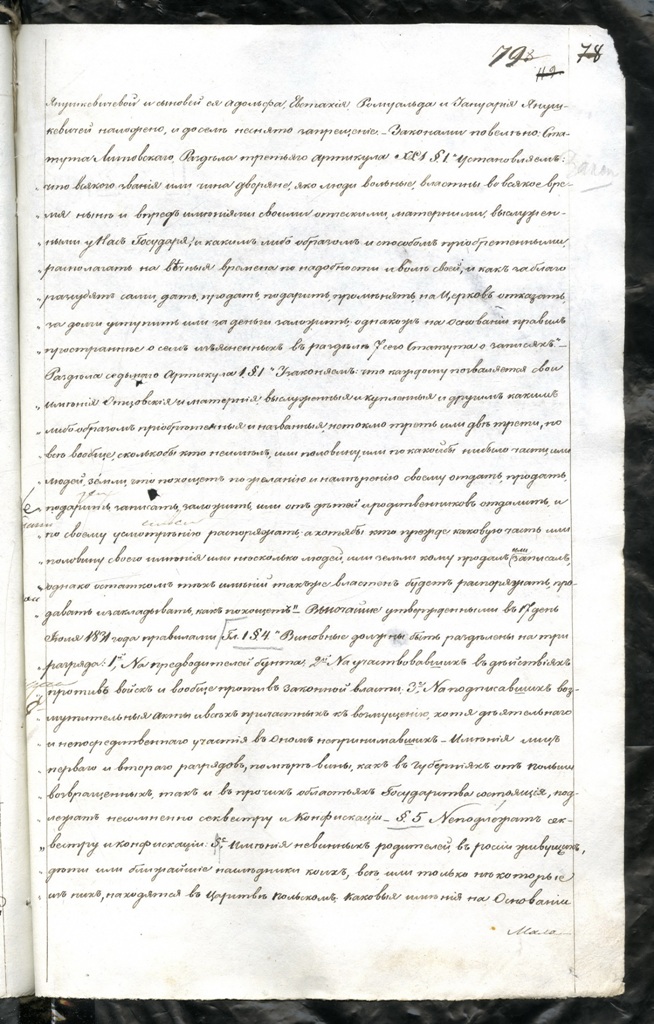 79 78
Янушкевичевой и сыновей ея Адольфа, Евстахія Ромуальда и Януарія Януш-
кевичей наложено, и доселе неснято запрещеніе. – Законами повелено: Ста-
тута Литовскаго Раздѣла третьяго артикула XXI § 1 "Установляемъ:
что всякого званія или чина дворяне, яко люди вольные, властны во всякое вре-
мя нынѣ и впредь имѣніями своими отескими, материими, выслужен-
ными у Насъ Государя, и какимъ либо образомъ и способомъ пріобретенными,
располагать на вѣчныя времена по надобности и волѣ своей, и какъ заблаго
разсудятъ сами, дать, продать, подарить, промѣнять, на Церковь отказать,
за долги уступить или за деньги заложить, однакожъ на основаніи правилъ
пространнѣе о семъ изъясненныхъ въ раздѣлѣ 7 сего Статута о записяхъ" –
Раздѣла седьмаго Артикула 1, § 1 "Узаконяемъ: что каждому позволяется свои
имѣнія Отцовскія и материя выслуженныя и купленныя и другимъ какимъ
либо образомъ пріобретенныя и названныя, не токмо треть или двѣ трети, но
всю вообще, сколькобы кто неимѣлъ, или половину, или по какой бы нибыло части, или
людей, земли, кто похощетъ по желанію и намѣренію своему отдать, продать,
подарить, записать, заложить, или отъ дѣтей и родственниковъ отдалить, и
по своему усмотрѣнію распоряжать: а хотябы кто прежде каковую часть или
половину своего имѣнія или нѣсколько людей, или земли кому продалъ или записалъ,
однако остаткомъ тѣхъ имѣній такъже властенъ будетъ распоряжать, про-
давать и закладывать, какъ похощетъ" – Высочайше утвержденными въ 17 день
Іюля 1831 года правилами Гл. 1 § 4 "Виновные должны быть раздѣлены на три
разряда: 1е На предводителей бунта, 2е На участвовавшихъ въ дѣйствіяхъ
противъ войскъ и вообще противъ законной власти, 3е На подписавшихъ воз-
мутительныя акты и всѣхъ приставшихъ къ возмущенію, хотя дѣятельнаго
и непосредственнаго участія въ ономъ непринимавшихъ – Имѣнія лицъ
перваго и втораго разрядовъ, по мѣрѣ вины, какъ въ Губерніяхъ отъ Польши
возвращенныхъ, такъ и въ прочихъ областяхъ Государства состоящія, под-
лежатъ неотмѣнно секвестру и Конфискаціи – § 5 Неподлежатъ сек-
вестру и конфискаціи: Имѣнія невинныхъ родителей, въ росіи живущихъ,
дѣти или ближайшіе наслѣдники коихъ, всѣ или только некоторые
изъ нихъ, находятся въ Царствѣ Польскомъ. Каковыя имѣнія на Основаніи